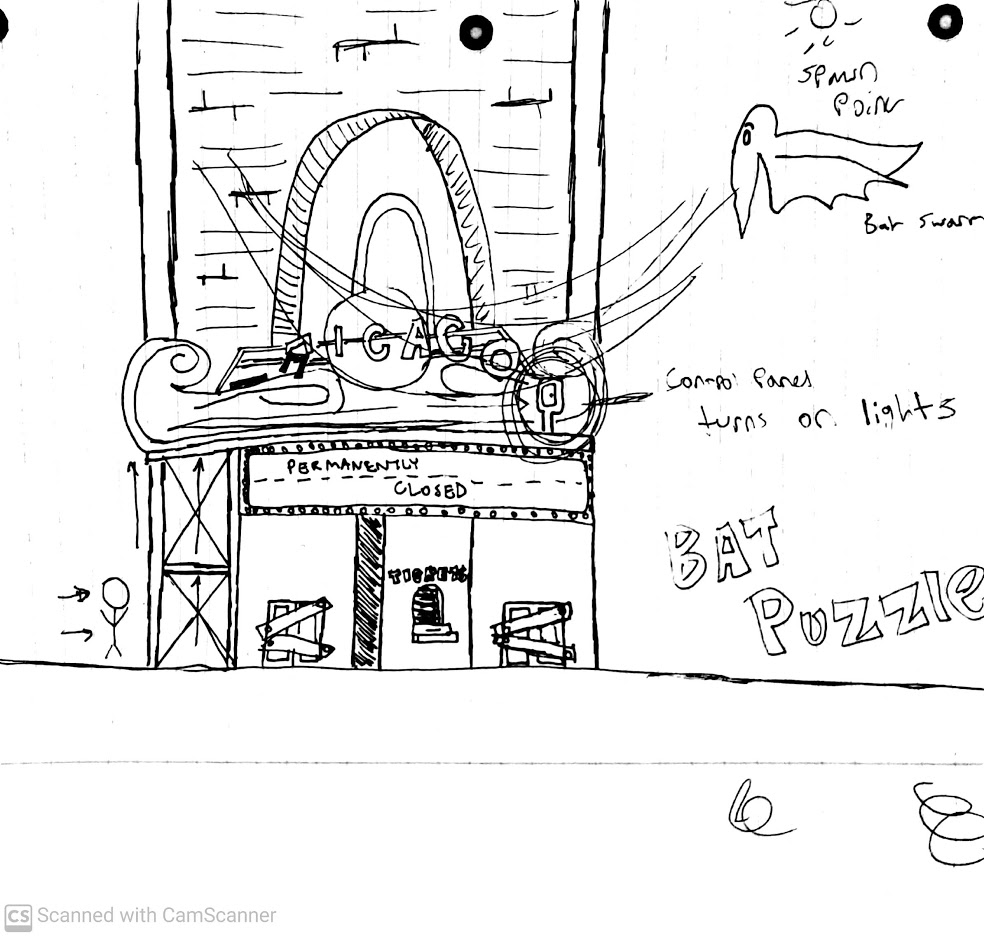 Spawn
Point
Bat Swarm
HICAGO
Control Panel
turns on lights
PERMANENTLY
CLOSED
BAT
PUZZLE
TICKETS
CS Scanned with CamScanner